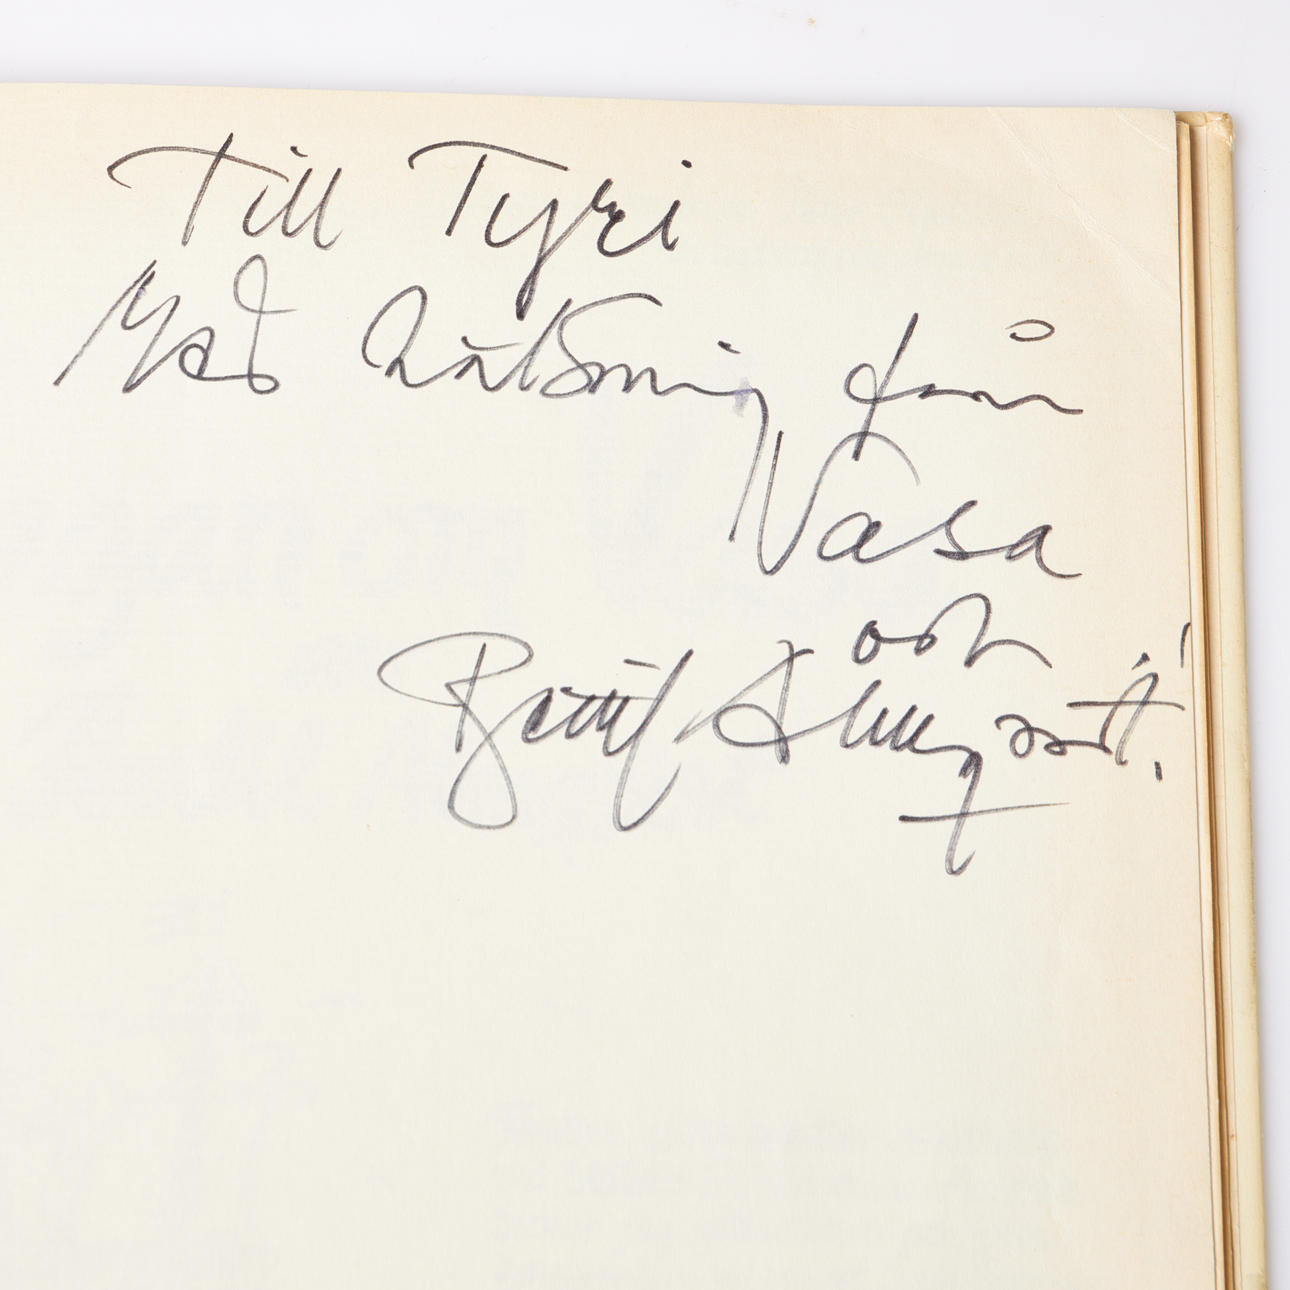 Till Tyri
Med hälsning från
Vasa
och
Bertil Almqvist!